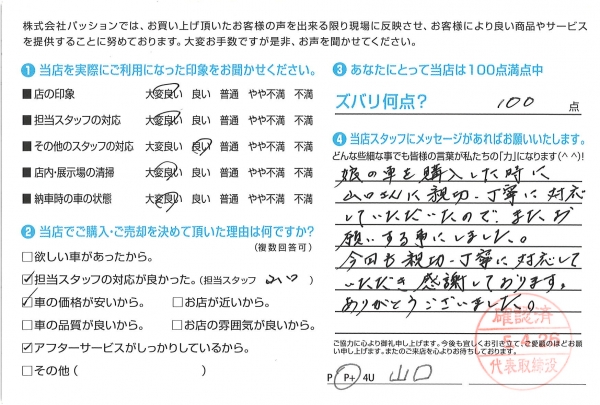 株式会社パッションでは、お買い上げ頂いたお客様の声を出来る限り現場に反映させ、お客様により良い商品やサービス
を提供することに努めております。大変お手数ですが是非、お声を聞かせてください。
❶ 当店を実際にご利用になった印象をお聞かせください。
■店の印象 大変良い 良い 普通 やや不満 不満
■担当スタッフの対応 大変良い 良い 普通 やや不満 不満
■その他のスタッフの対応 大変良い 良い 普通 やや不満 不満
■店内・展示場の清掃 大変良い 良い 普通 やや不満 不満
■納車時の車の状態 大変良い 良い 普通 やや不満 不満
❷ 当店でご購入・ご売却を決めて頂いた理由は何ですか?
(複数回答可)
□欲しい車があったから。
☑担当スタッフの対応が良かった。(担当スタッフ 山口 )
☑車の価格が安いから。 □お店が近いから。
□車の品質が良いから。 □お店の雰囲気が良いから。
☑アフターサービスがしっかりしているから。
□その他 ( )
❸ あなたにとって当店は100点満点中
ズバリ何点? 100 点
❹ 当店スタッフにメッセージがあればお願いいたします。
どんな些細な事でも皆様の言葉が私たちの「力」になります(^ ^)!
娘の車を購入した時に
山口さんに親切、丁寧に対応
していただいたので、またお
願いする事にしました。
今回も親切、丁寧に対応して
いただき感謝しております。
ありがとうございました。
ご協力に心より御礼申し上げます。今後も宜しくお引き立て、ご愛顧のほどお願
い申し上げます。またのご来店を心よりお待ちしております。
P P+ 4U 山口
確認済
5.4.26
代表取締役